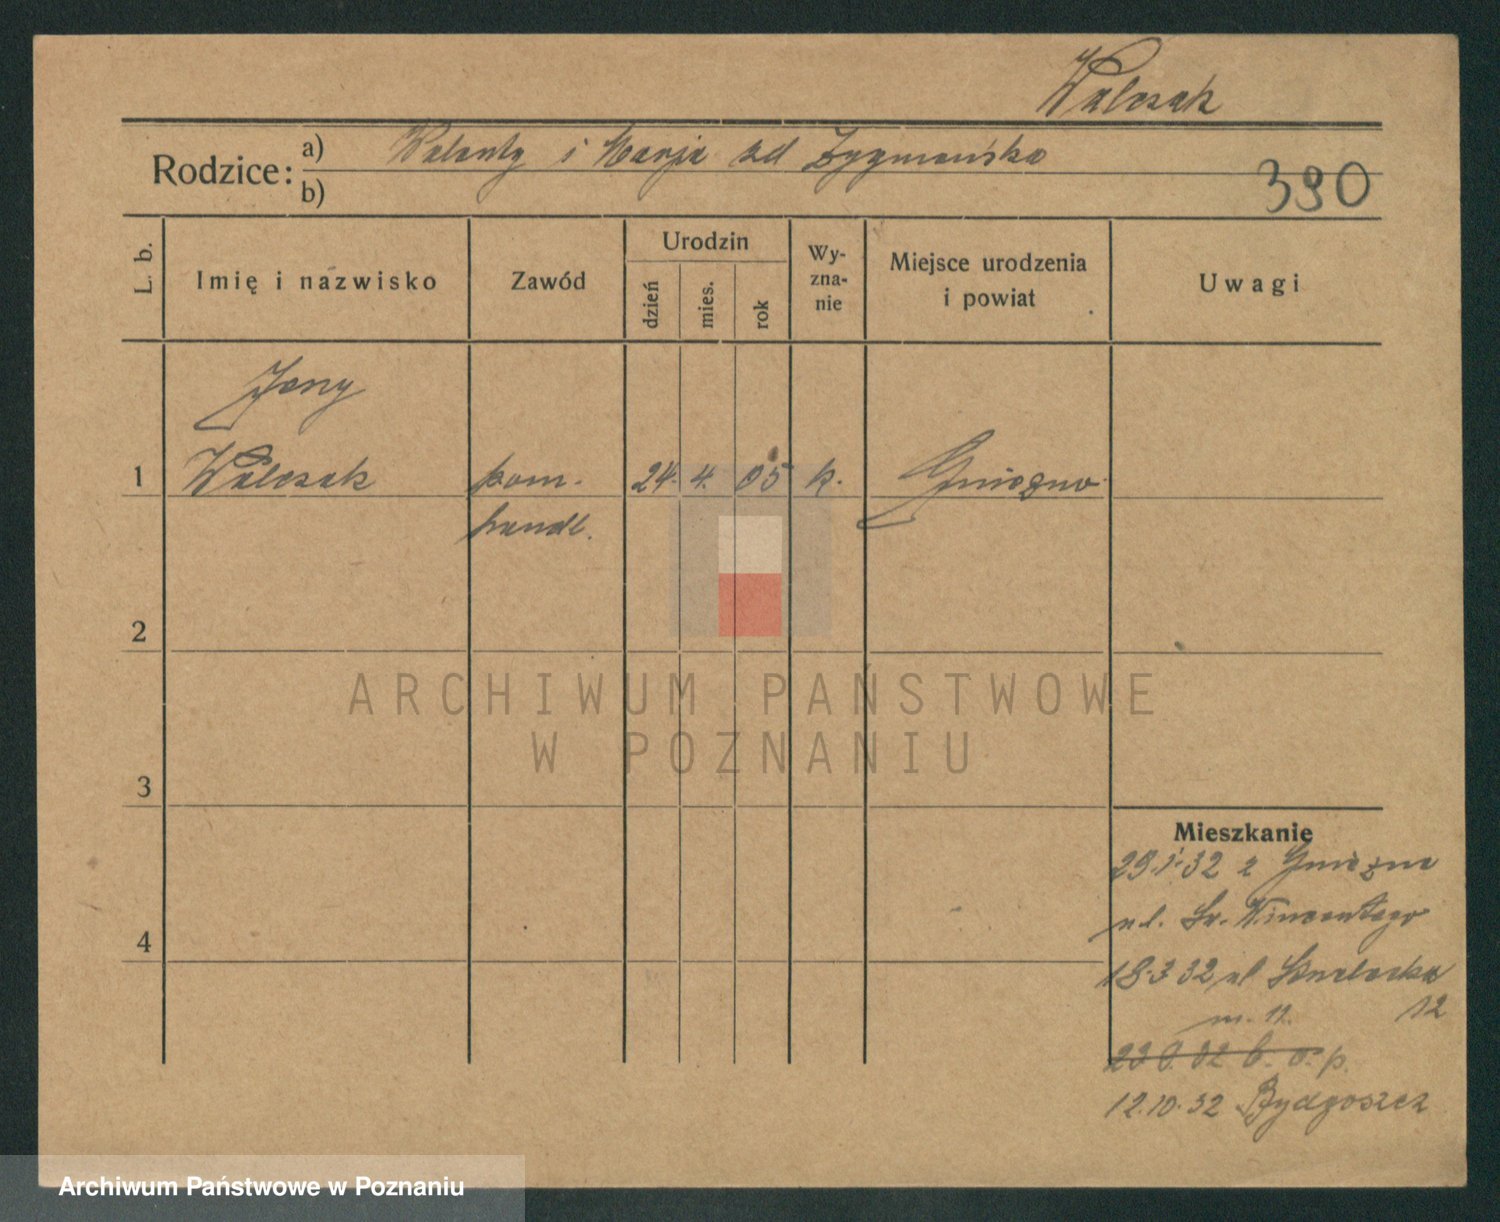 Walczak
Rodzice: a) Walenty i Marja zd Zygmańska
b)
390
L. b. Imię i nazwisko Zawód Urodzin dzień mies. rok Wy-zna-nie Miejsce urodzenia i powiat Uwagi
Jerzy
1 Walczak pom. 24. 4. 05 k. Gniezno
handl.
2
ARCHIWUM PAŃSTWOWE
W POZNANIU
3
Mieszkanie
29.1.32 z Gniezna
ul. Św. Wincentego
4
18.3 32 ul
12
m. 11.
32 b. o. p.
12.10.32 Bydgoszcz
Archiwum Państwowe w Poznaniu